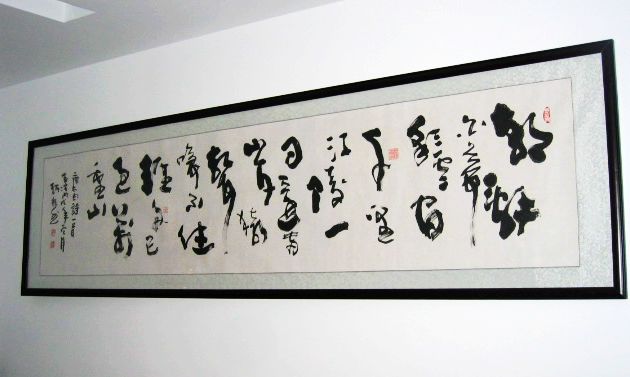 朝辭
白帝
彩雲間
千里
江陵一
日還兩
岸猿
聲
啼不住
輕舟已
過萬
重山